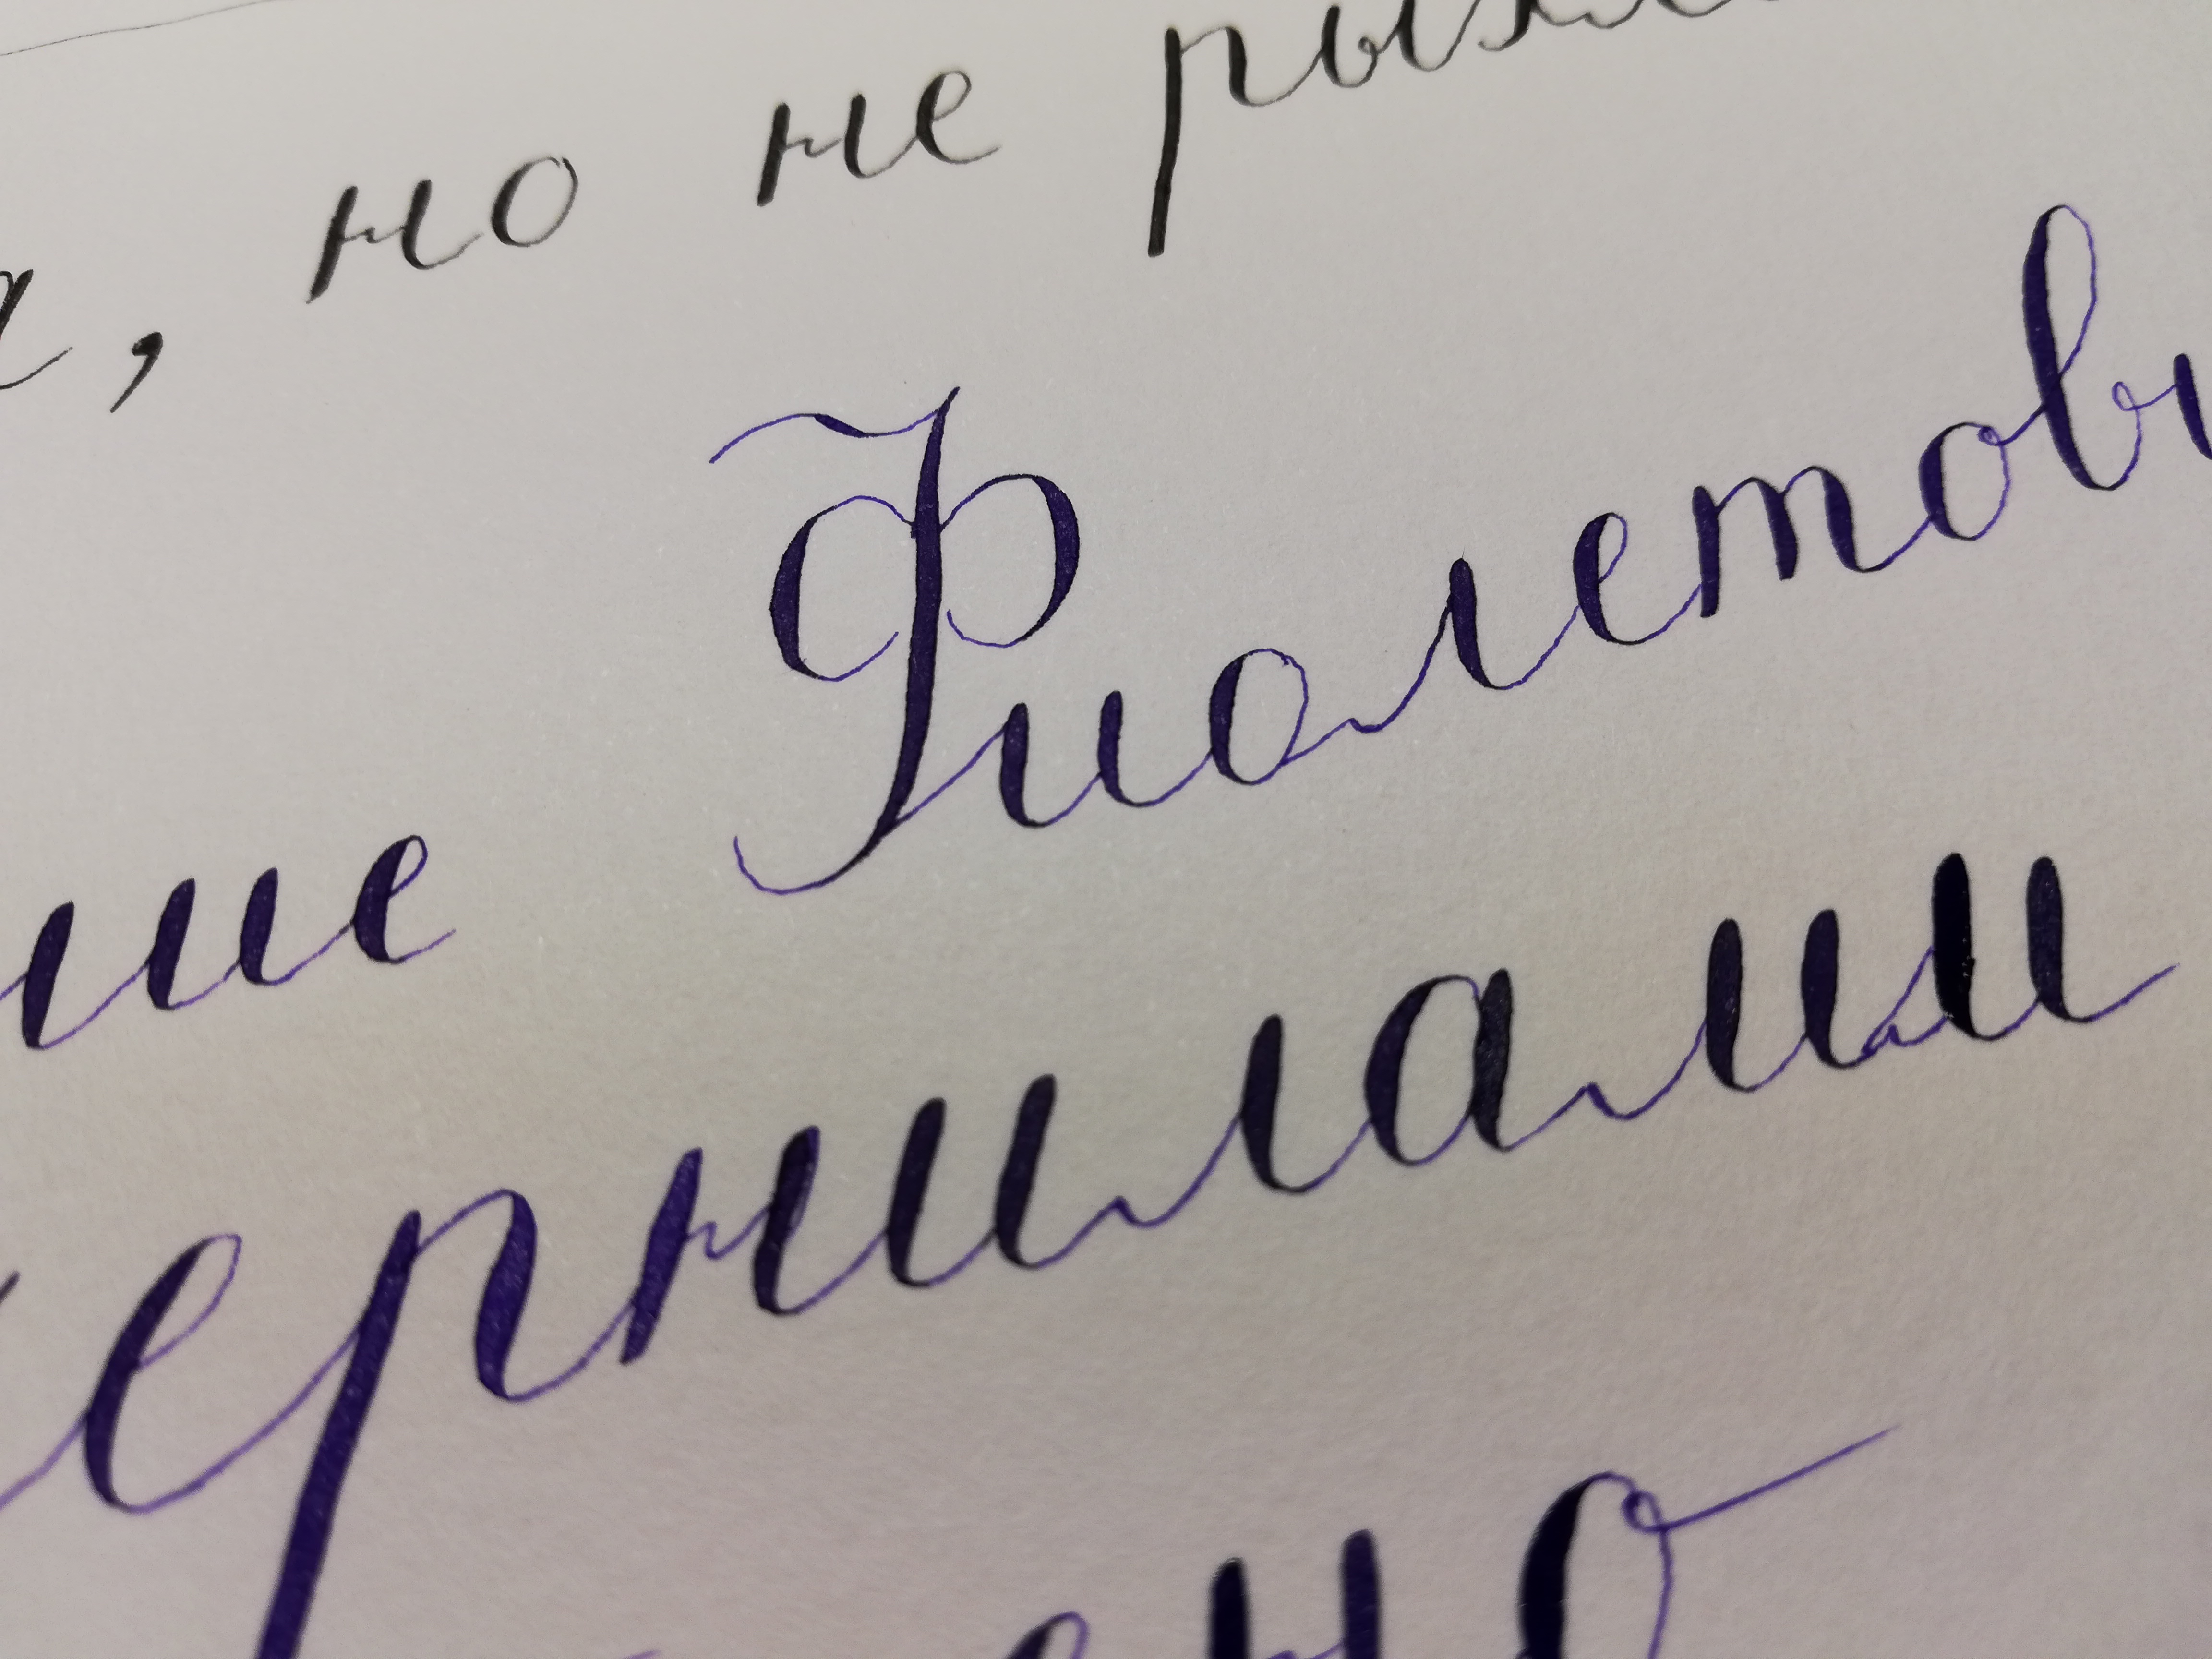 , но не рыж
ше Фиолетовы
ернилами
но